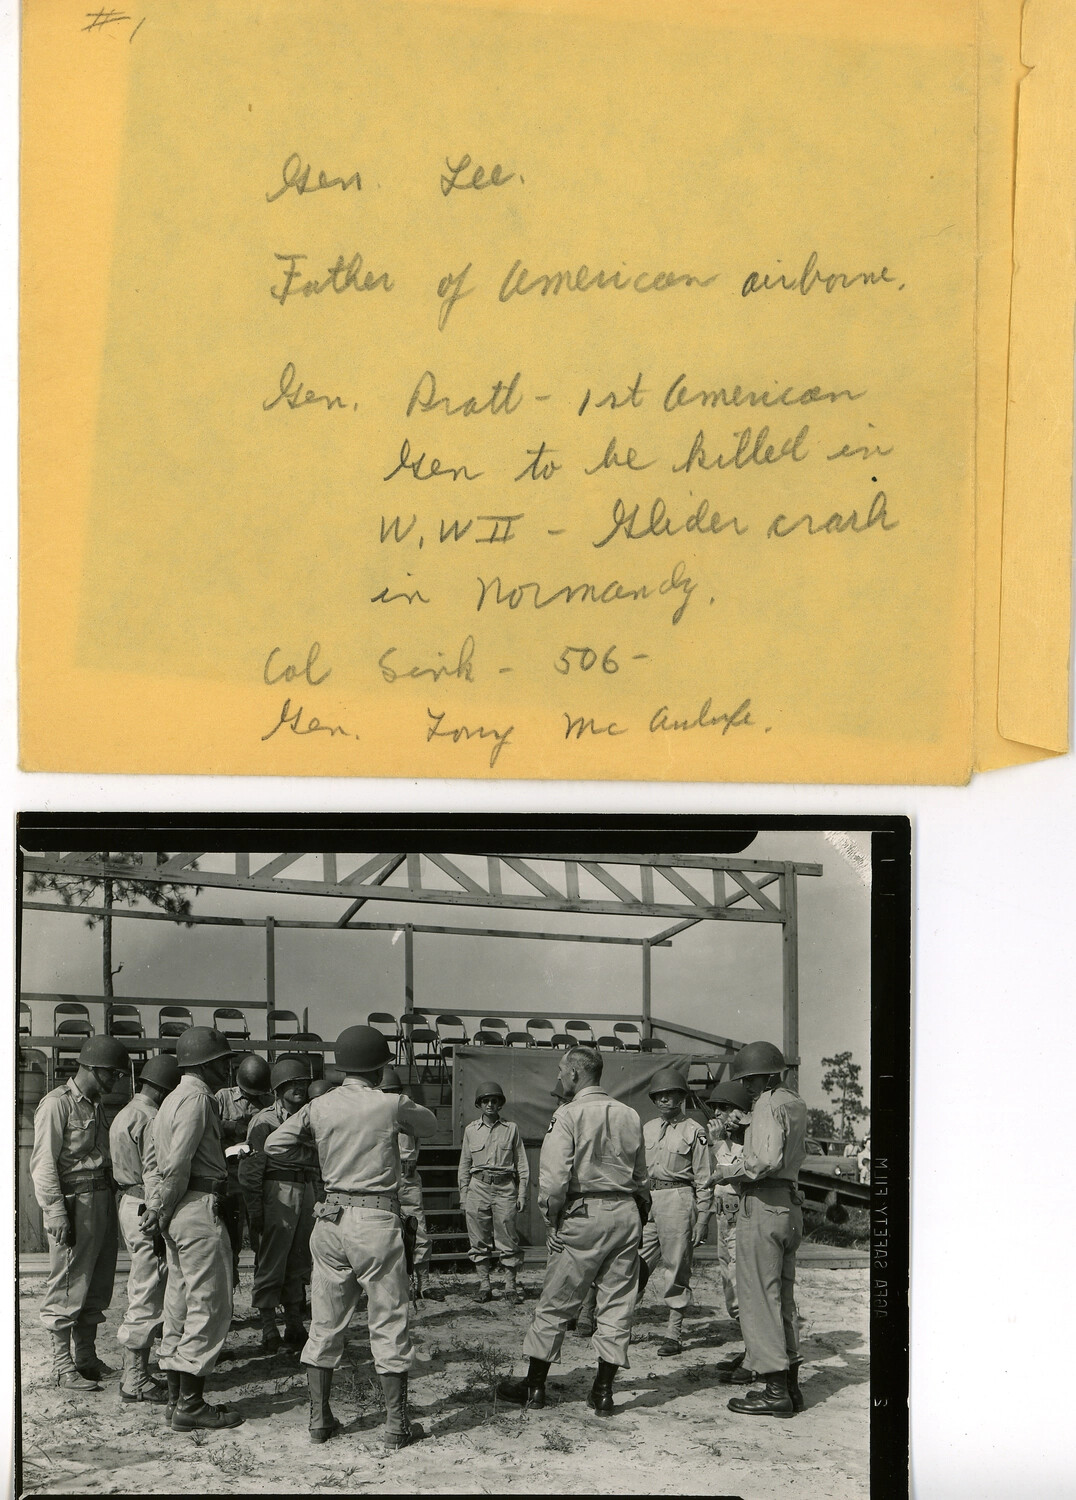 #1
Gen. Lee.
Father of American airborne.
Gen. Pratt - 1st American
Gen to be killed in
W.W II - Glider crash
in Normandy.
Col Sink - 506-
Gen. Tony Mc Aulife.
AGFA SAFETY FILM
2